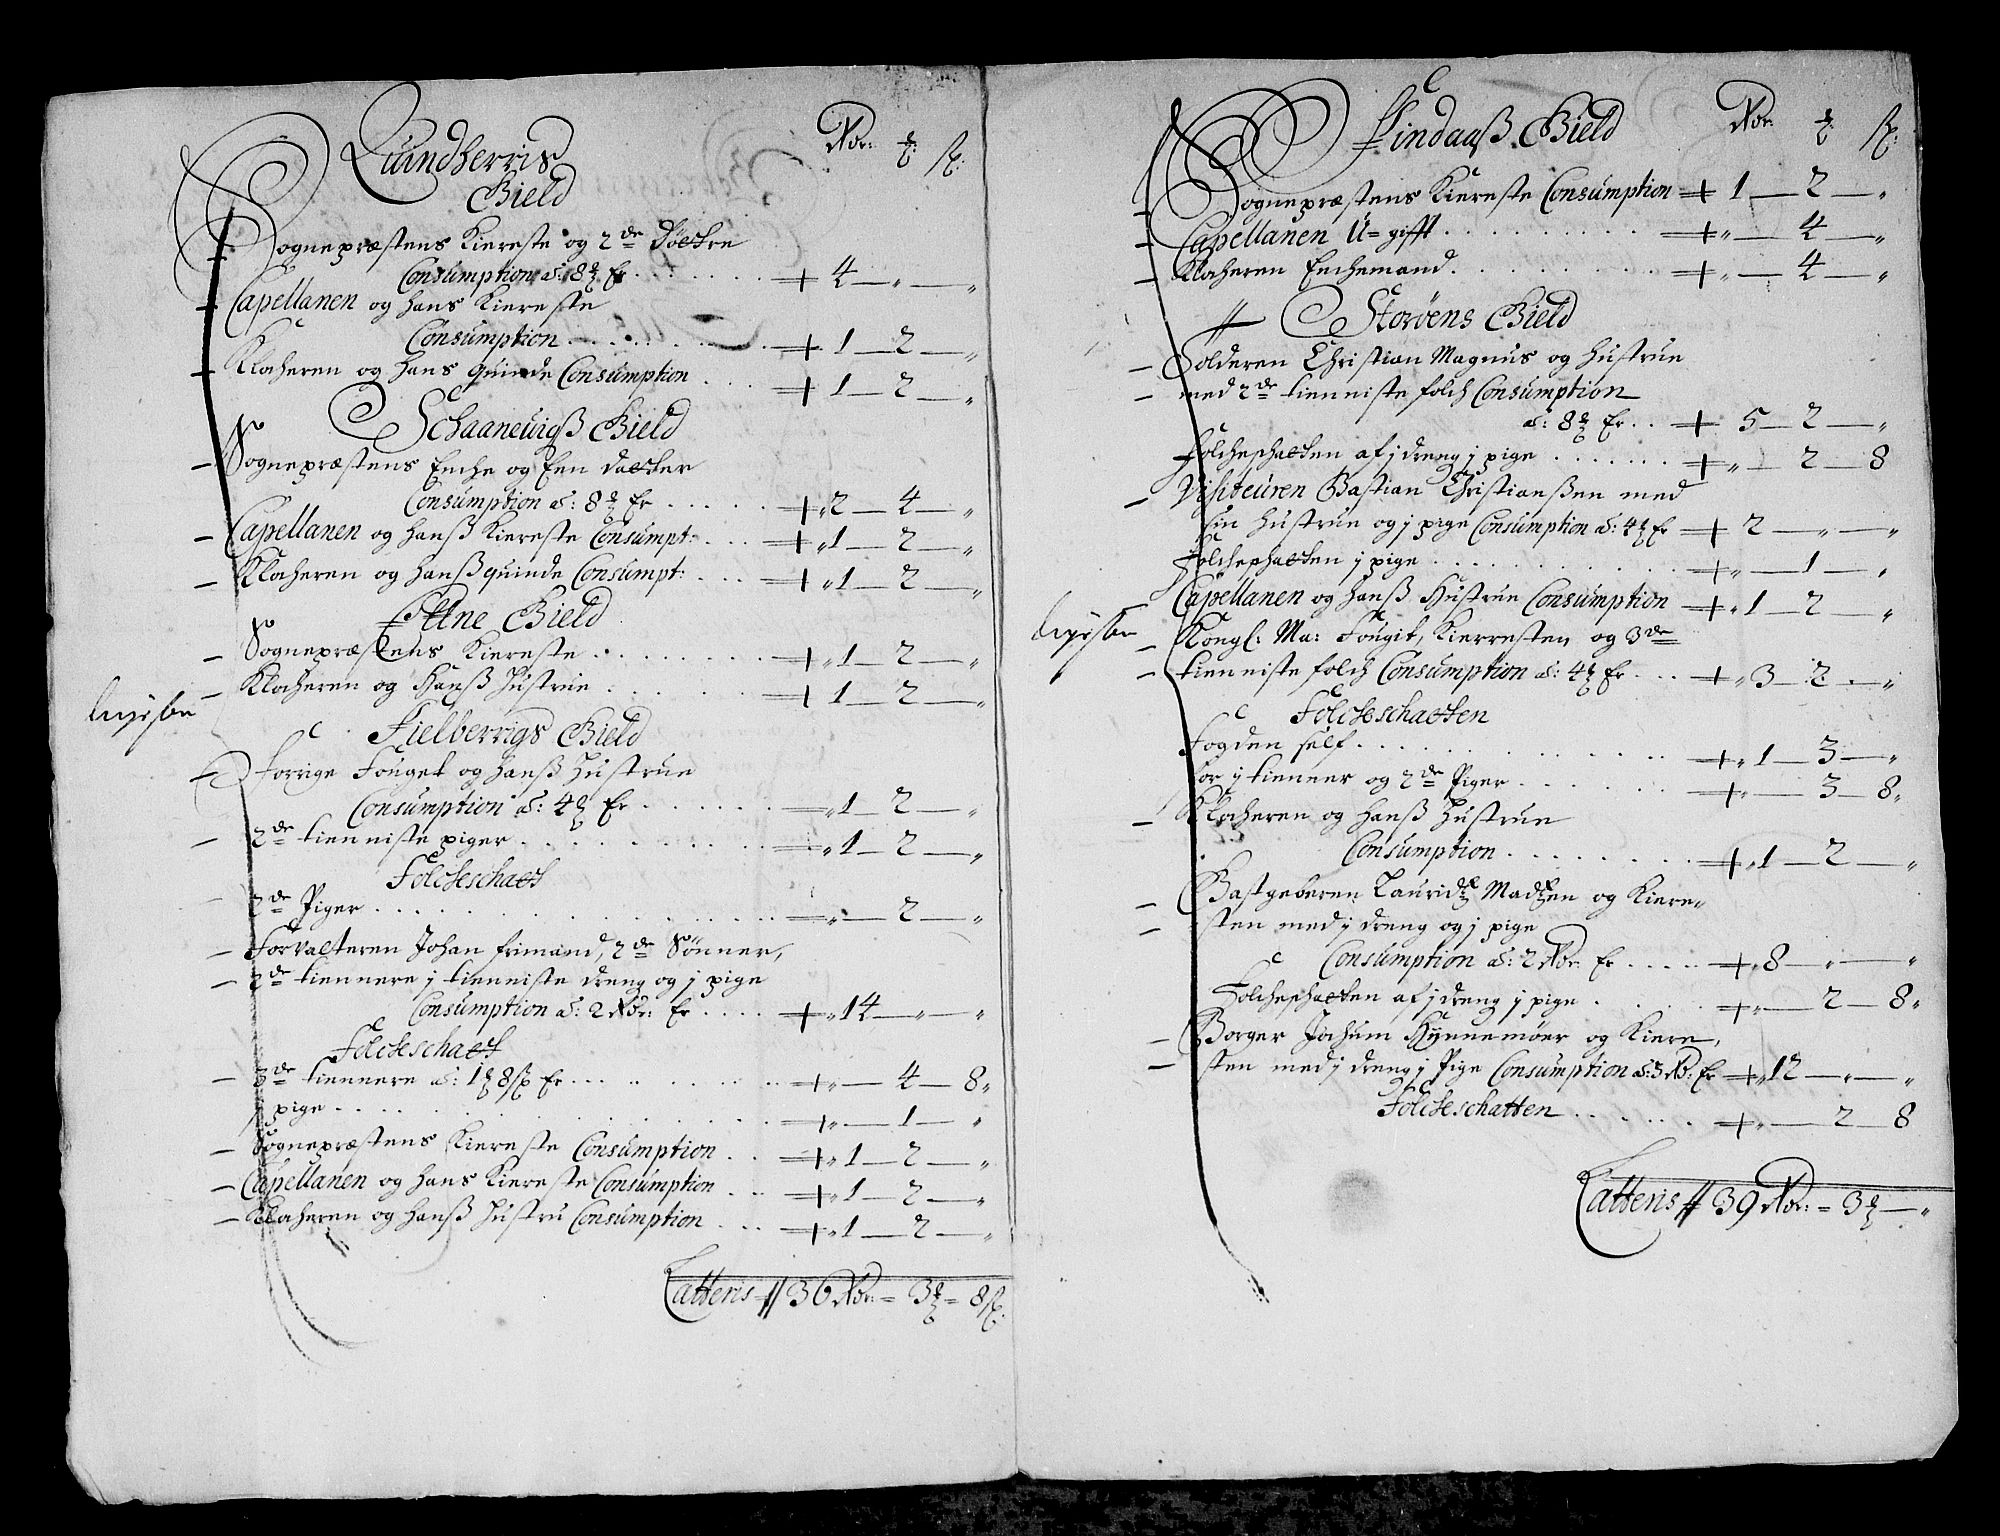 Quindherris Rdr: ℥: ß:
Gield
Sognepræstens Kiereste og 2de Döettre
Consumption a: 8 ℥ Er . . . . . 4 — „ — „
Capellanen og hans Kiereste
Consumption . . . . . 1 — 2 — „
Klocheren og hans quinde Consumption . . 1 — 2 — „
Schaaneuigß Gield
Sognepræstens Enche og Een daatter
Consumption a: 8 ℥ Er . . . . . „ 2 — 4 — „
Capellanen og hanß Kiereste Consumpt: . . . „ 1 — 2 — „
Klocheren og hanß quinde Consumpt: . . . „ 1 — 2 — „
Ettne Gield
Sognepræstens Kiereste . . . . . „ 1 — 2 — „
Klocheren og hanß hustrue . . . . . 1 — 2 — „
Fielberrigs Gield
forrige Fouget og hanß hustrue
Consumption a: 4 ℥ Er . . . . . „ 1 — 2 — „
2de tienniste piger . . . . . „ 1 — 2 — „
Folcheschatt
2de Piger . . . . . „ — 2 — „
Forvalteren Johan frimand, 2de Sönner,
2de tiennere j tienniste dreng og j pige
Consumption a: 2 Rdr: Er . . . . „ 14 — „ — „
Folcheschatt
3de tiennere a: 1 ℥ 8 ß Er . . . . . „ — 4 — 8 „
j pige . . . . . „ — 1 — „
Sognepræstens Kiereste Consumption . . „ 1 — 2 — „
Capellanen og hans Kiereste Consumption . . „ 1 — 2 — „
Klocheren og hanß hustru Consumption . . . „ 1 — 2 — „
Latteris // 36 Rdr: = 3 ℥ = 8 ß:
Lindaaß Gield Rdr: ℥: ß:
Sognepræstens Kiereste Consumption 1 — 2 — „
Capellanen U=gifft . . . . . „ — 4 — „
Klocheren Enchemand . . . . . „ — 4 — „
// Storöens Gield
Tolderen Christian Magnus og hustrue
med 2de tienniste folch Consumption
a: 8 ℥ Er . . 5 — 2 — „
folcheschatten af j dreng j pige . . . . . „ — 2 — 8
Visiteuren Bastian Christianßen med
sin hustrue og j pige Consumption a: 4 ℥ Er 2 — „ — „
folcheschatten j pige . . . . . „ — 1 — „
Capellanen og hanß Hustrue Consumption „ 1 — 2 — „
Kongl: Ma: Fougit, Kierresten og 3de
tienniste folch Consumption a: 4 ℥ Er . . . „ 3 — 2 — „
Folcheschatten
Fogden self . . . . . „ 1 — 3 — „
for j tienner og 2de Piger . . . . . „ — 3 — 8 „
Klocheren og hanß hustrue
Consumption . . . . . „ 1 — 2 — „
Gastgeberen Lauridtz Madtzen og Kiere„
sten med j dreng og j pige
Consumption a: 2 Rdr: Er . . . . . „ 8 — „ — „
Folcheschatten af j dreng j pige . . . . „ — 2 — 8 „
Borger Jochum Hynnemöer og Kiere,
sten med j dreng j Pige Consumption a: 3 Rd: Er „ 12 — „ — „
Folcheschatten . . . . . „ — 2 — 8
Latteris // 39 Rdr: = 3 ℥ — „